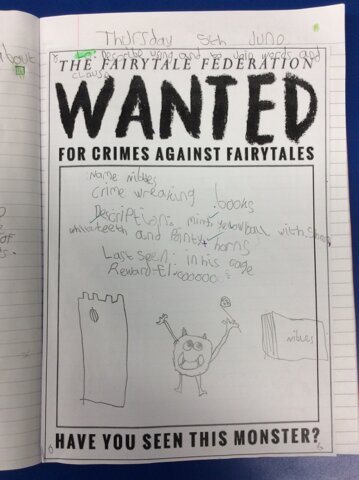 about
Thursday 5th June
L: Describe using and to join words and
clause
THE FAIRYTALE FEDERATION
WANTED
FOR CRIMES AGAINST FAIRYTALES
Name nibles
Crime wreaking books
Description: minth yellow ball with
white teeth and Pointy horns
Last seen: in his cage
Reward £1:000000
nibles
HAVE YOU SEEN THIS MONSTER?
of